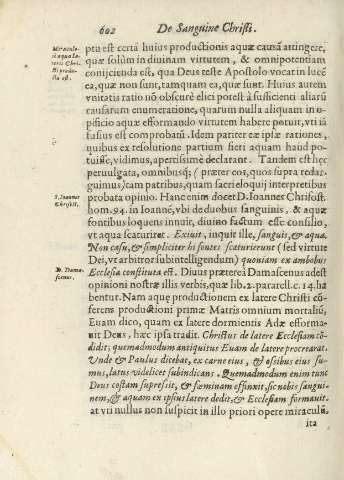 602 De Sanguine Christi.
Miraculosa aqua lateris Christi producta est.
ptū est certā huius productionis aquæ causā attingere,
quàm solum in diuinam virtutem, & omnipotentiam
conijcienda est, qua Deus teste Apostolo vocat in lucē
ea, quæ non sunt, tamquam ea, quæ sunt. Huius autem
vnitatis ratio nō obscurè elici potest à sufficienti aliarū
causarum enumeratione, quarum nulla aliquam in o-
pificio aquæ efformando virtutem habere potuit, vti iā
fusius est comprobatū. Idem pariter ex ipsæ rationes,
quibus ex resolutione partium fieri aquam haud po-
tuisse, vidimus, apertissimè declarant. Tandem est hęc
peruulgata, omnibusq; (præter eos, quos supra redar-
guimus) tam patribus, quam sacri eloquij interpretibus
probata opinio. Hanc enim docet D. Ioannes Chrisost.
S. Ioannes Chrisost.
hom. 94. in Ioannē, vbi de duobus sanguinis, & aquæ
fontibus loquens inuit, diuino factum esse consilio,
vt aqua scaturiret. Exiuit, inquit ille, sanguis, & aqua.
Non casu, & simpliciter hi fontes scaturierunt (sed virtute
Dei, vt arbitror subintelligendum) quoniam ex ambobus
Ecclesia constituta est. Diuus præterea Damascenus adest
D. Damascenus.
opinioni nostræ illis verbis, quæ lib. 2. paralell. c. 14. ha
bentur. Nam aquę productionem ex latere Christi cō-
ferens productioni primæ Matris omnium mortaliū,
Euam dico, quam ex latere dormientis Adæ efforma-
uit Deus, hæc ipsa tradit. Christus de latere Ecclesiam cō-
didit; quemadmodum antiquitus Euam de latere procrearat.
Unde & Paulus dicebat, ex carne eius, & ossibus eius su-
mus, latus videlicet subindicans. Quemadmodum enim tunc
Deus costam supresit, & fœminam effinxit, sic nobis sangui-
nem, & aquam ex ipsius latere dedit, & Ecclesiam formauit.
at vti nullus non suspicit in illo priori opere miraculū,
ita